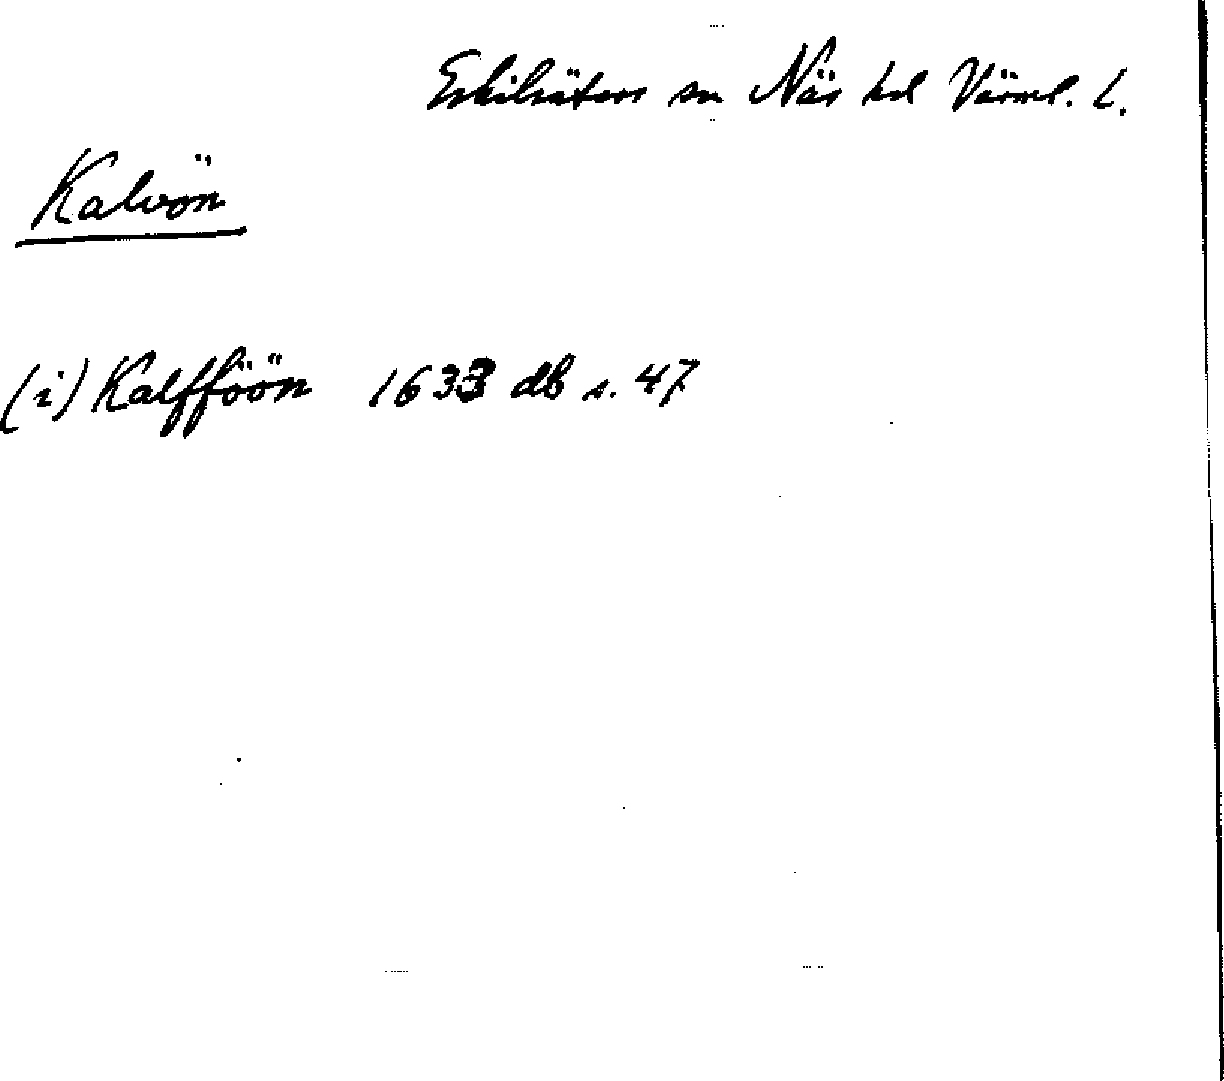 Eskilsäters sn Näs hd Värml. l.
Kalvön
(i) Kalfföön 1633 db s. 47